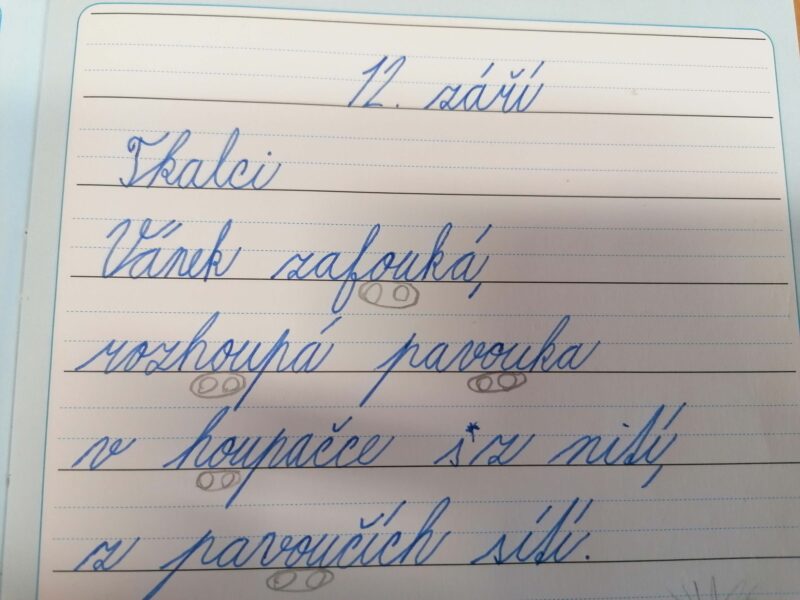 12. září
Tkalci
Vánek zafouká,
rozhoupá pavouka
v houpačce s z nití,
z pavoučích sítí.